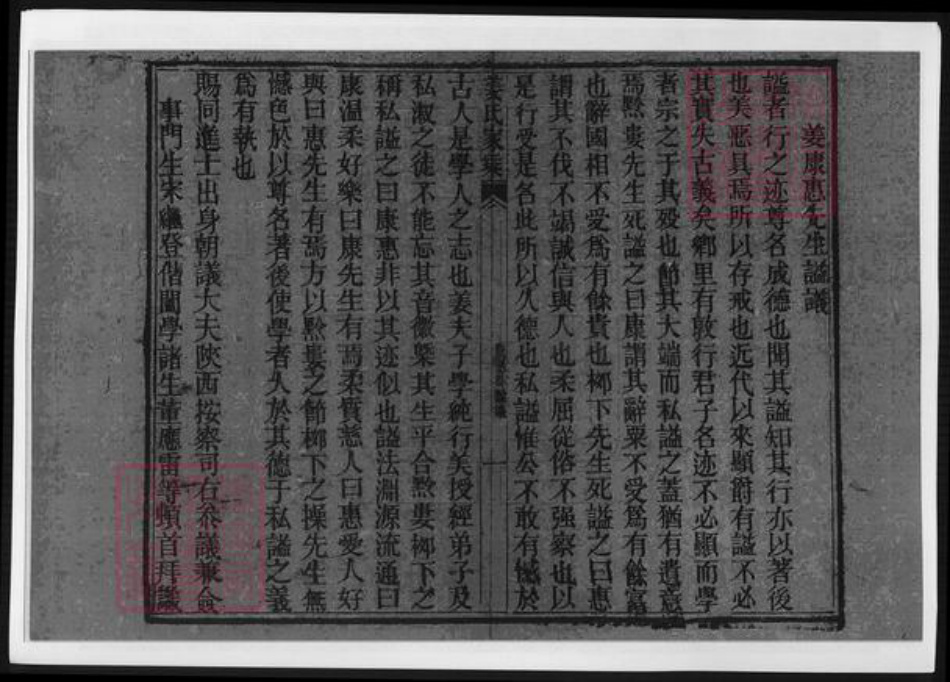 姜康惠先生謚議
謚者行之迹尊名成德也聞其謚知其行亦以著後
也美惡具焉所以存戒也近代以來顯爵有謚不必
其實失古義矣鄉里有敦行君子名迹不必顯而學
者宗之于其歿也節其大端而私謚之蓋猶有遺意
焉黔婁先生死謚之曰康謂其辭粟不受為有餘富
也辭國相不受為有餘貴也栁下先生死謚之曰惠
謂其不伐不竭誠信與人也柔屈從俗不强察也以
是行受是名此所以久德也私謚惟公不敢有憾於
姜氏家乘 一
古人是學人之志也姜夫子學純行矣授經弟子及
私淑之徒不能忘其音徽槩其生平合黔婁栁下之
稱私謚之曰康惠非以其迹似也謚法淵源流通曰
康温柔好樂曰康先生有焉柔質慈人曰惠愛人好
與曰惠先生有焉方以黔婁之節栁下之操先生無
憾色於以尊名著後使學者久於其德于私謚之義
為有執也
賜同進士出身朝議大夫陝西按察司右叅議兼僉
事門生宋繼登偕闔學諸生董應雷等頓首拜議